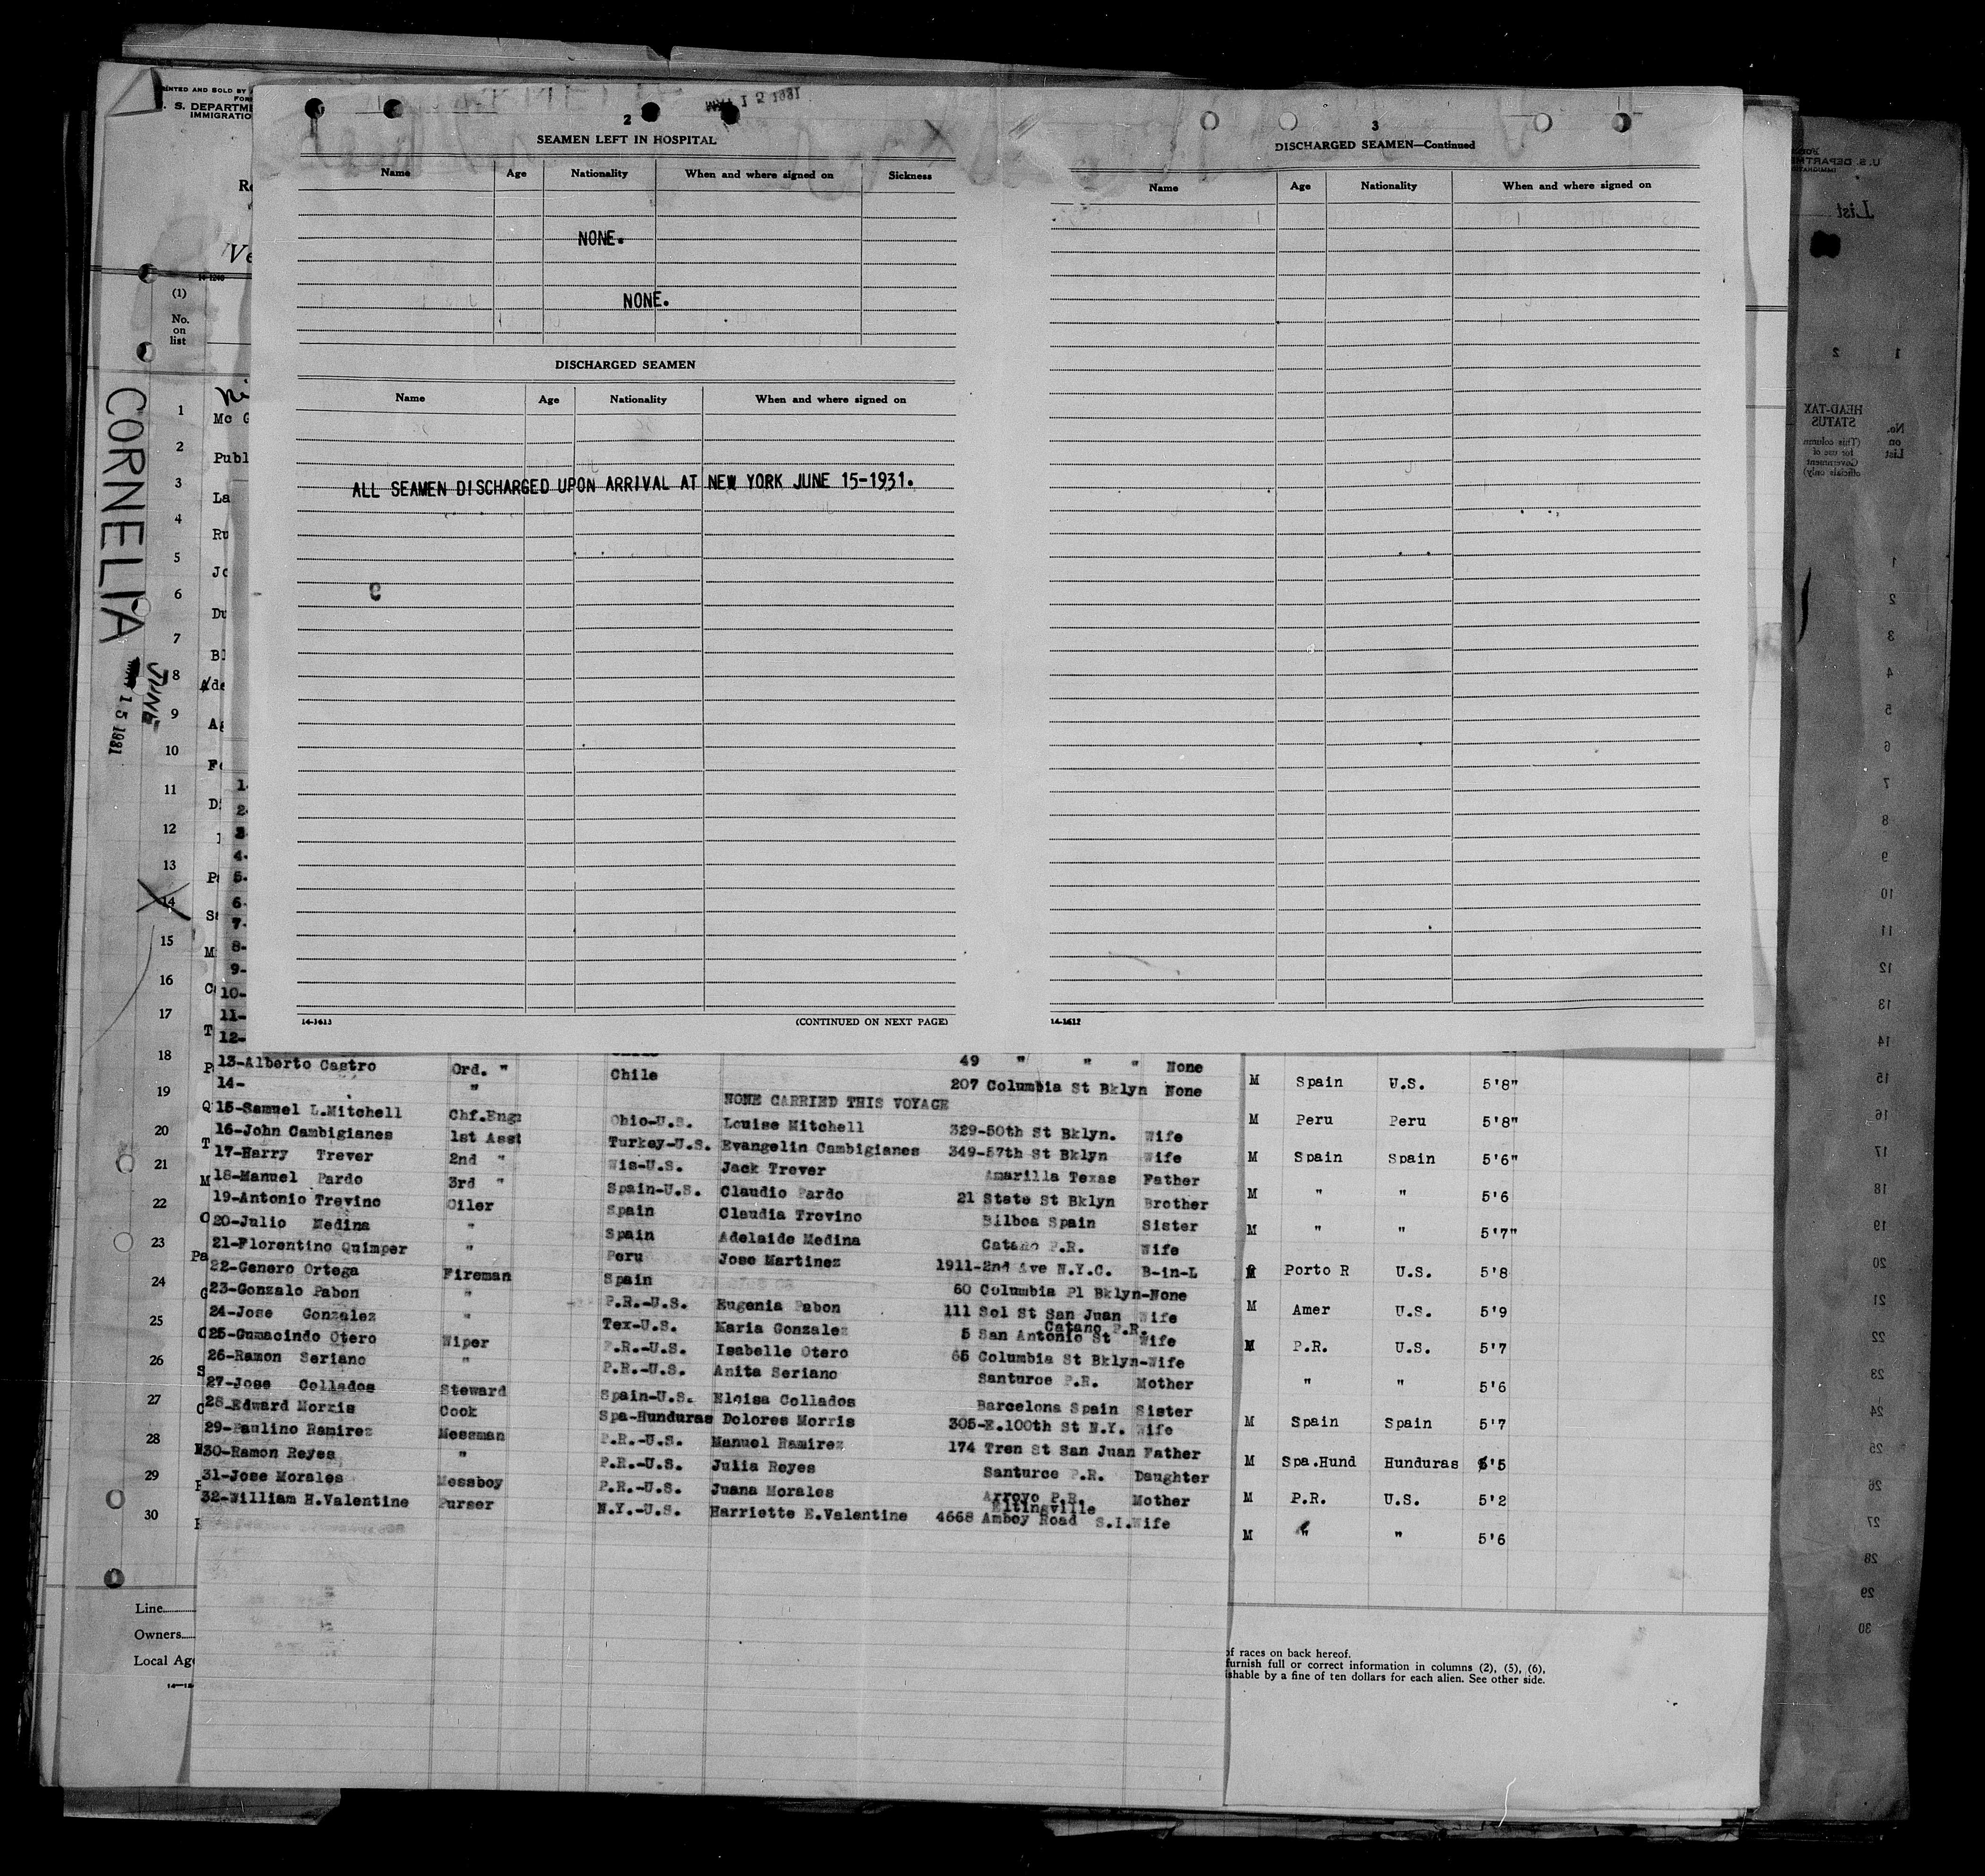 2
SEAMEN LEFT IN HOSPITAL
Name Age Nationality When and where signed on Sickness
NONE.
NONE.
DISCHARGED SEAMEN
Name Age Nationality When and where signed on
ALL SEAMEN DISCHARGED UPON ARRIVAL AT NEW YORK JUNE 15-1931.
C
14-1613 (CONTINUED ON NEXT PAGE)
3
DISCHARGED SEAMEN—Continued
Name Age Nationality When and where signed on
14-1612
CORNELIA
JUNE
15 1931
(1)
No.
on
list
1 Mc G
2 Publ
3 La
4 Ru
5 Jo
6 Du
7
8
9
10
11
12
13
14
15
16
17
18
19
20
21
22
23
24
25
26
27
28
29
30
Line
Owners
Local Ag
49 " " " None
13-Alberto Castro Ord. " Chile 207 Columbia St Bklyn None
14- " NONE CARRIED THIS VOYAGE
15-Samuel L.Mitchell Chf.Engr Ohio-U.S. Louise Mitchell 329-50th St Bklyn. Wife
16-John Cambigianes 1st Asst Turkey-U.S. Evangelin Cambigianes 349-57th St Bklyn Wife
17-Harry Trever 2nd " Wis-U.S. Jack Trever Amarilla Texas Father
18-Manuel Pardo 3rd " Spain-U.S. Claudio Pardo 21 State St Bklyn Brother
19-Antonio Trevino Oiler Spain Claudia Trevino Bilboa Spain Sister
20-Julio Medina " Spain Adelaide Medina Catano P.R. Wife
21-Florentino Quimper " Peru Jose Martinez 1911-2nd Ave N.Y.C. B-in-L
22-Genero Ortega Fireman Spain 60 Columbia Pl Bklyn-None
23-Gonzalo Pabon " P.R.-U.S. Eugenia Pabon 111 Sol St San Juan Wife
24-Jose Gonzalez " Tex-U.S. Maria Gonzalez 5 San Antonio St Catano P.R. Wife
25-Gumacindo Otero Wiper P.R.-U.S. Isabelle Otero 65 Columbia St Bklyn-Wife
26-Ramon Seriano " P.R.-U.S. Anita Seriano Santurce P.R. Mother
27-Jose Collados Steward Spain-U.S. Eloisa Collados Barcelona Spain Sister
28-Edward Morris Cook Spa-Hunduras Dolores Morris 305-E.100th St N.Y. Wife
29-Paulino Ramirez Messman P.R.-U.S. Manuel Ramirez 174 Tren St San Juan Father
30-Ramon Reyes " P.R.-U.S. Julia Reyes Santurce P.R. Daughter
31-Jose Morales Messboy P.R.-U.S. Juana Morales Arroyo P.R. Mother
32-William H.Valentine Purser N.Y.-U.S. Harriette E.Valentine 4668 Amboy Road Eltingville S.I. Wife
M Spain U.S. 5'8"
M Peru Peru 5'8"
M Spain Spain 5'6"
M " " 5'6
M " " 5'7"
M Porto R U.S. 5'8
M Amer U.S. 5'9
M P.R. U.S. 5'7
" " 5'6
M Spain Spain 5'7
M Spa.Hund Hunduras 5'5
M P.R. U.S. 5'2
M " " 5'6
of races on back hereof.
furnish full or correct information in columns (2), (5), (6),
shable by a fine of ten dollars for each alien. See other side.
List
HEAD-TAX
STATUS
(This column
for use of
Government
officials only)
No.
on
List